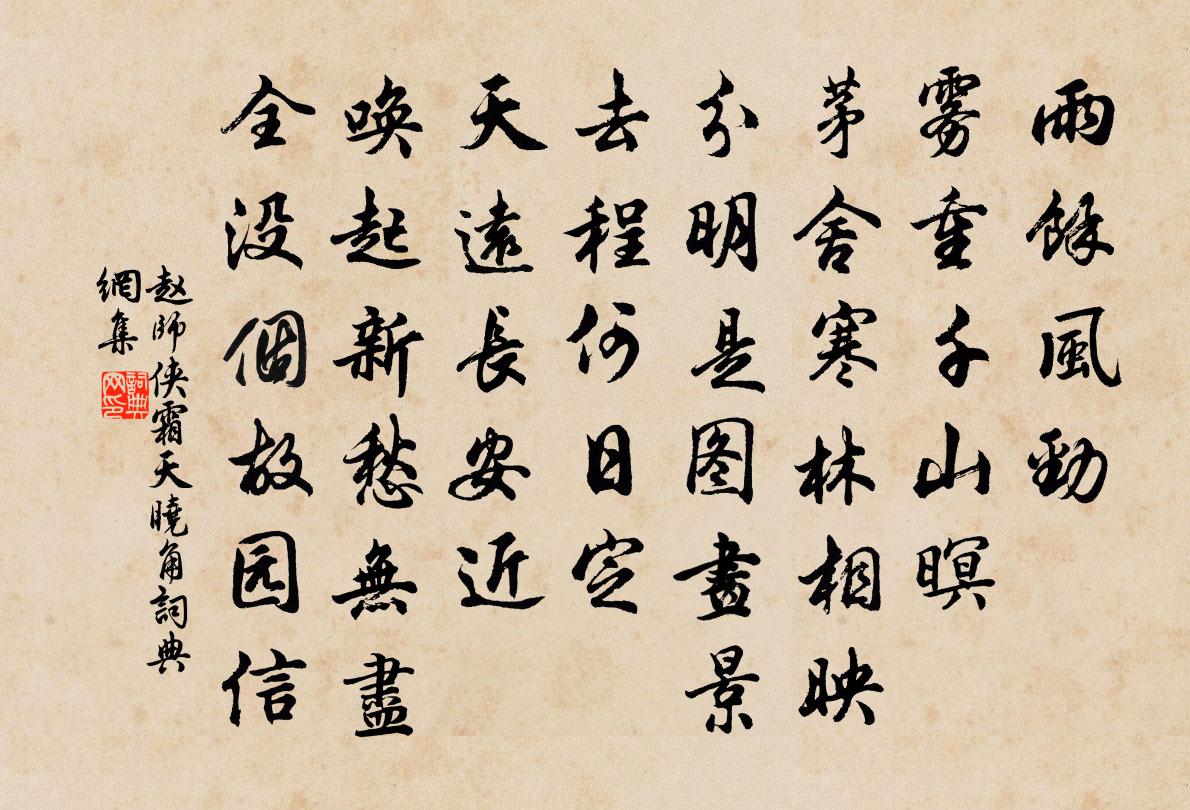 雨餘風勁
雾重千山暝
茅舍寒林相映
分明是图畫景
去程何日定
天遠長安近
唤起新愁無盡
全没個故园信
赵師侠霜天曉角詞典
網集
詞典
网印